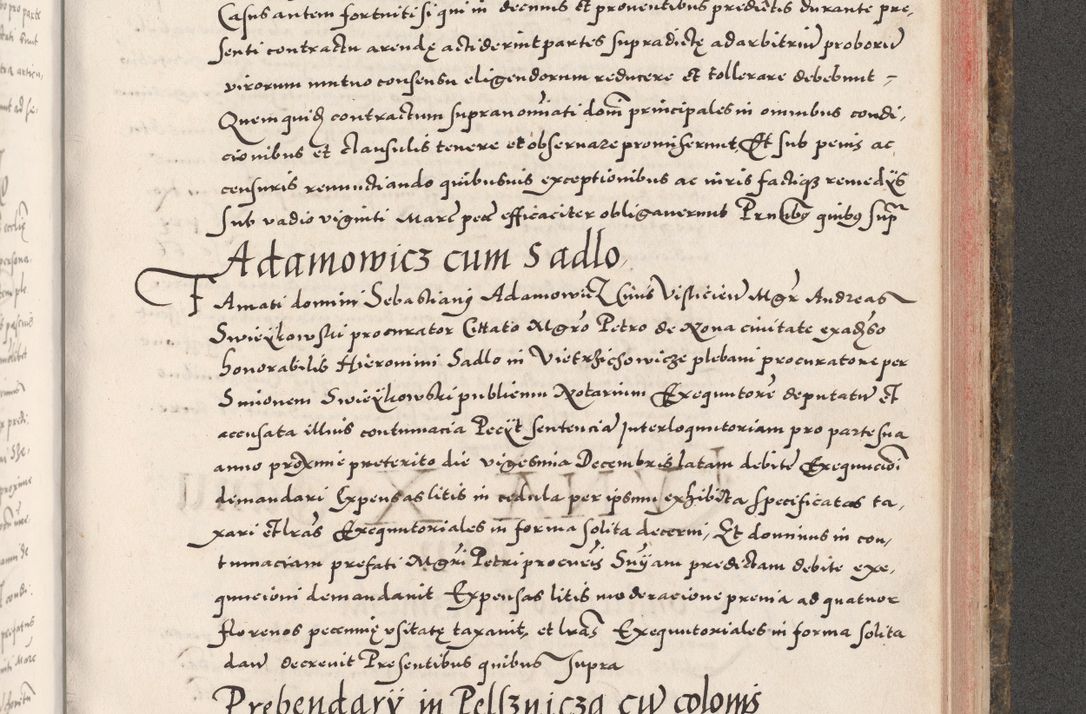 Casus autem fortuiti si qui in decimis et proventibus predictis durante pre,
senti contractu arendę acciderint partes supradictę ad arbitriū proborū
virorum mutuo consensu eligendorum reducere et tollerare debebunt =
Quem quidȝ contractum supranoīati domī principales in omnibus condi,
cionibus et clausulis tenere et observare promiserunt, Et sub penis ac
censuris renunctiando quibusvis exceptionibus ac iuris factiqȝ remedÿs
sub vadio viginti Marc̄ pec̄ efficaciter obligaverunt Prn̄tibꝫ quibꝫ supr̄
Adamowicz cum Sadlo,
Famati domini Sebastiani Adamowicz Civis Visliciēn Mgr̄ Andreas
Swieÿkowski procurator Cittato Mgr̄o Petro de Rona civitate ex adv̄so
honorabilis Hieronimi Sadlo in Vietrzichowicze plebani procuratore per
Simonem Swieÿkowski publicum Notarium Exequutorē deputatū et
accusata illius contumacia Pecÿt sententiā Interloquutoriam pro parte sua
anno proxime preterito die vigesima Decembris latam debitē Exequucioī
demandari Expensas litis in cedula per ipsum exhibita specificatas ta,
xari et lrās Exequutoriales in forma solita decerni, Et dominus in con,
tumaciam prefati Mgr̄i Petri procur̄is Suÿam predictam debite exe,
quucioni demandavit Expensas litis moderacione previa ad quatuor
florenos pecunię usitatę taxavit, et lrās Exequutoriales in forma solita
dan̄ decrevit Presentibus quibus Supra
Prebendarÿ in Pelsznicza cū colonis